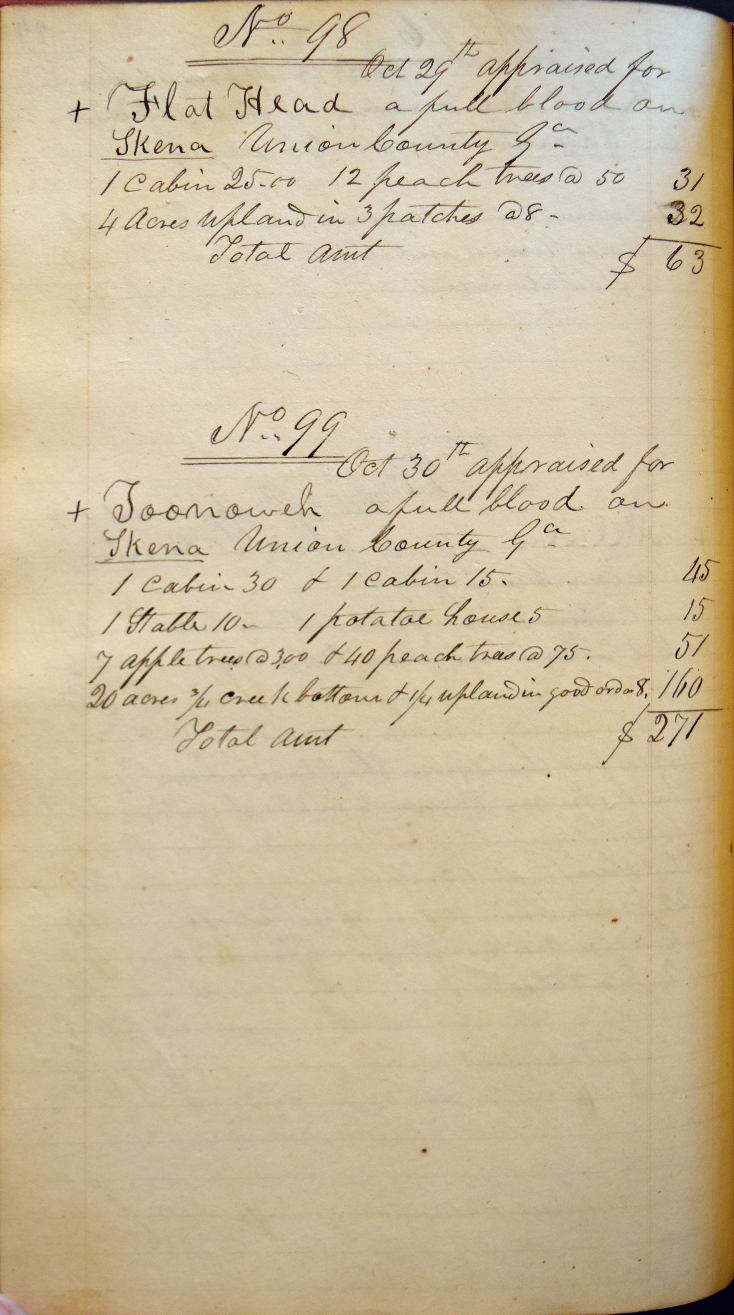 No. 98
Oct 29th appraised for
+ Flat Head a full blood on
Skena Union County Ga
1 Cabin 25.00 12 peach trees @ 50 31
4 Acres upland in 3 patches @ 8- 32
Total Amt $ 63
No. 99
Oct 30th appraised for
+ Toonoweh a full blood on
Skena Union County Ga
1 Cabin 30 & 1 Cabin 15. 45
1 Stable 10- 1 potatoe house 5 15
7 apple trees @ 3,00 & 40 peach trees @ 75. 51
20 acres 3/4 creek bottom & 1/4 upland in good ord @ 8. 160
Total Amt $ 271